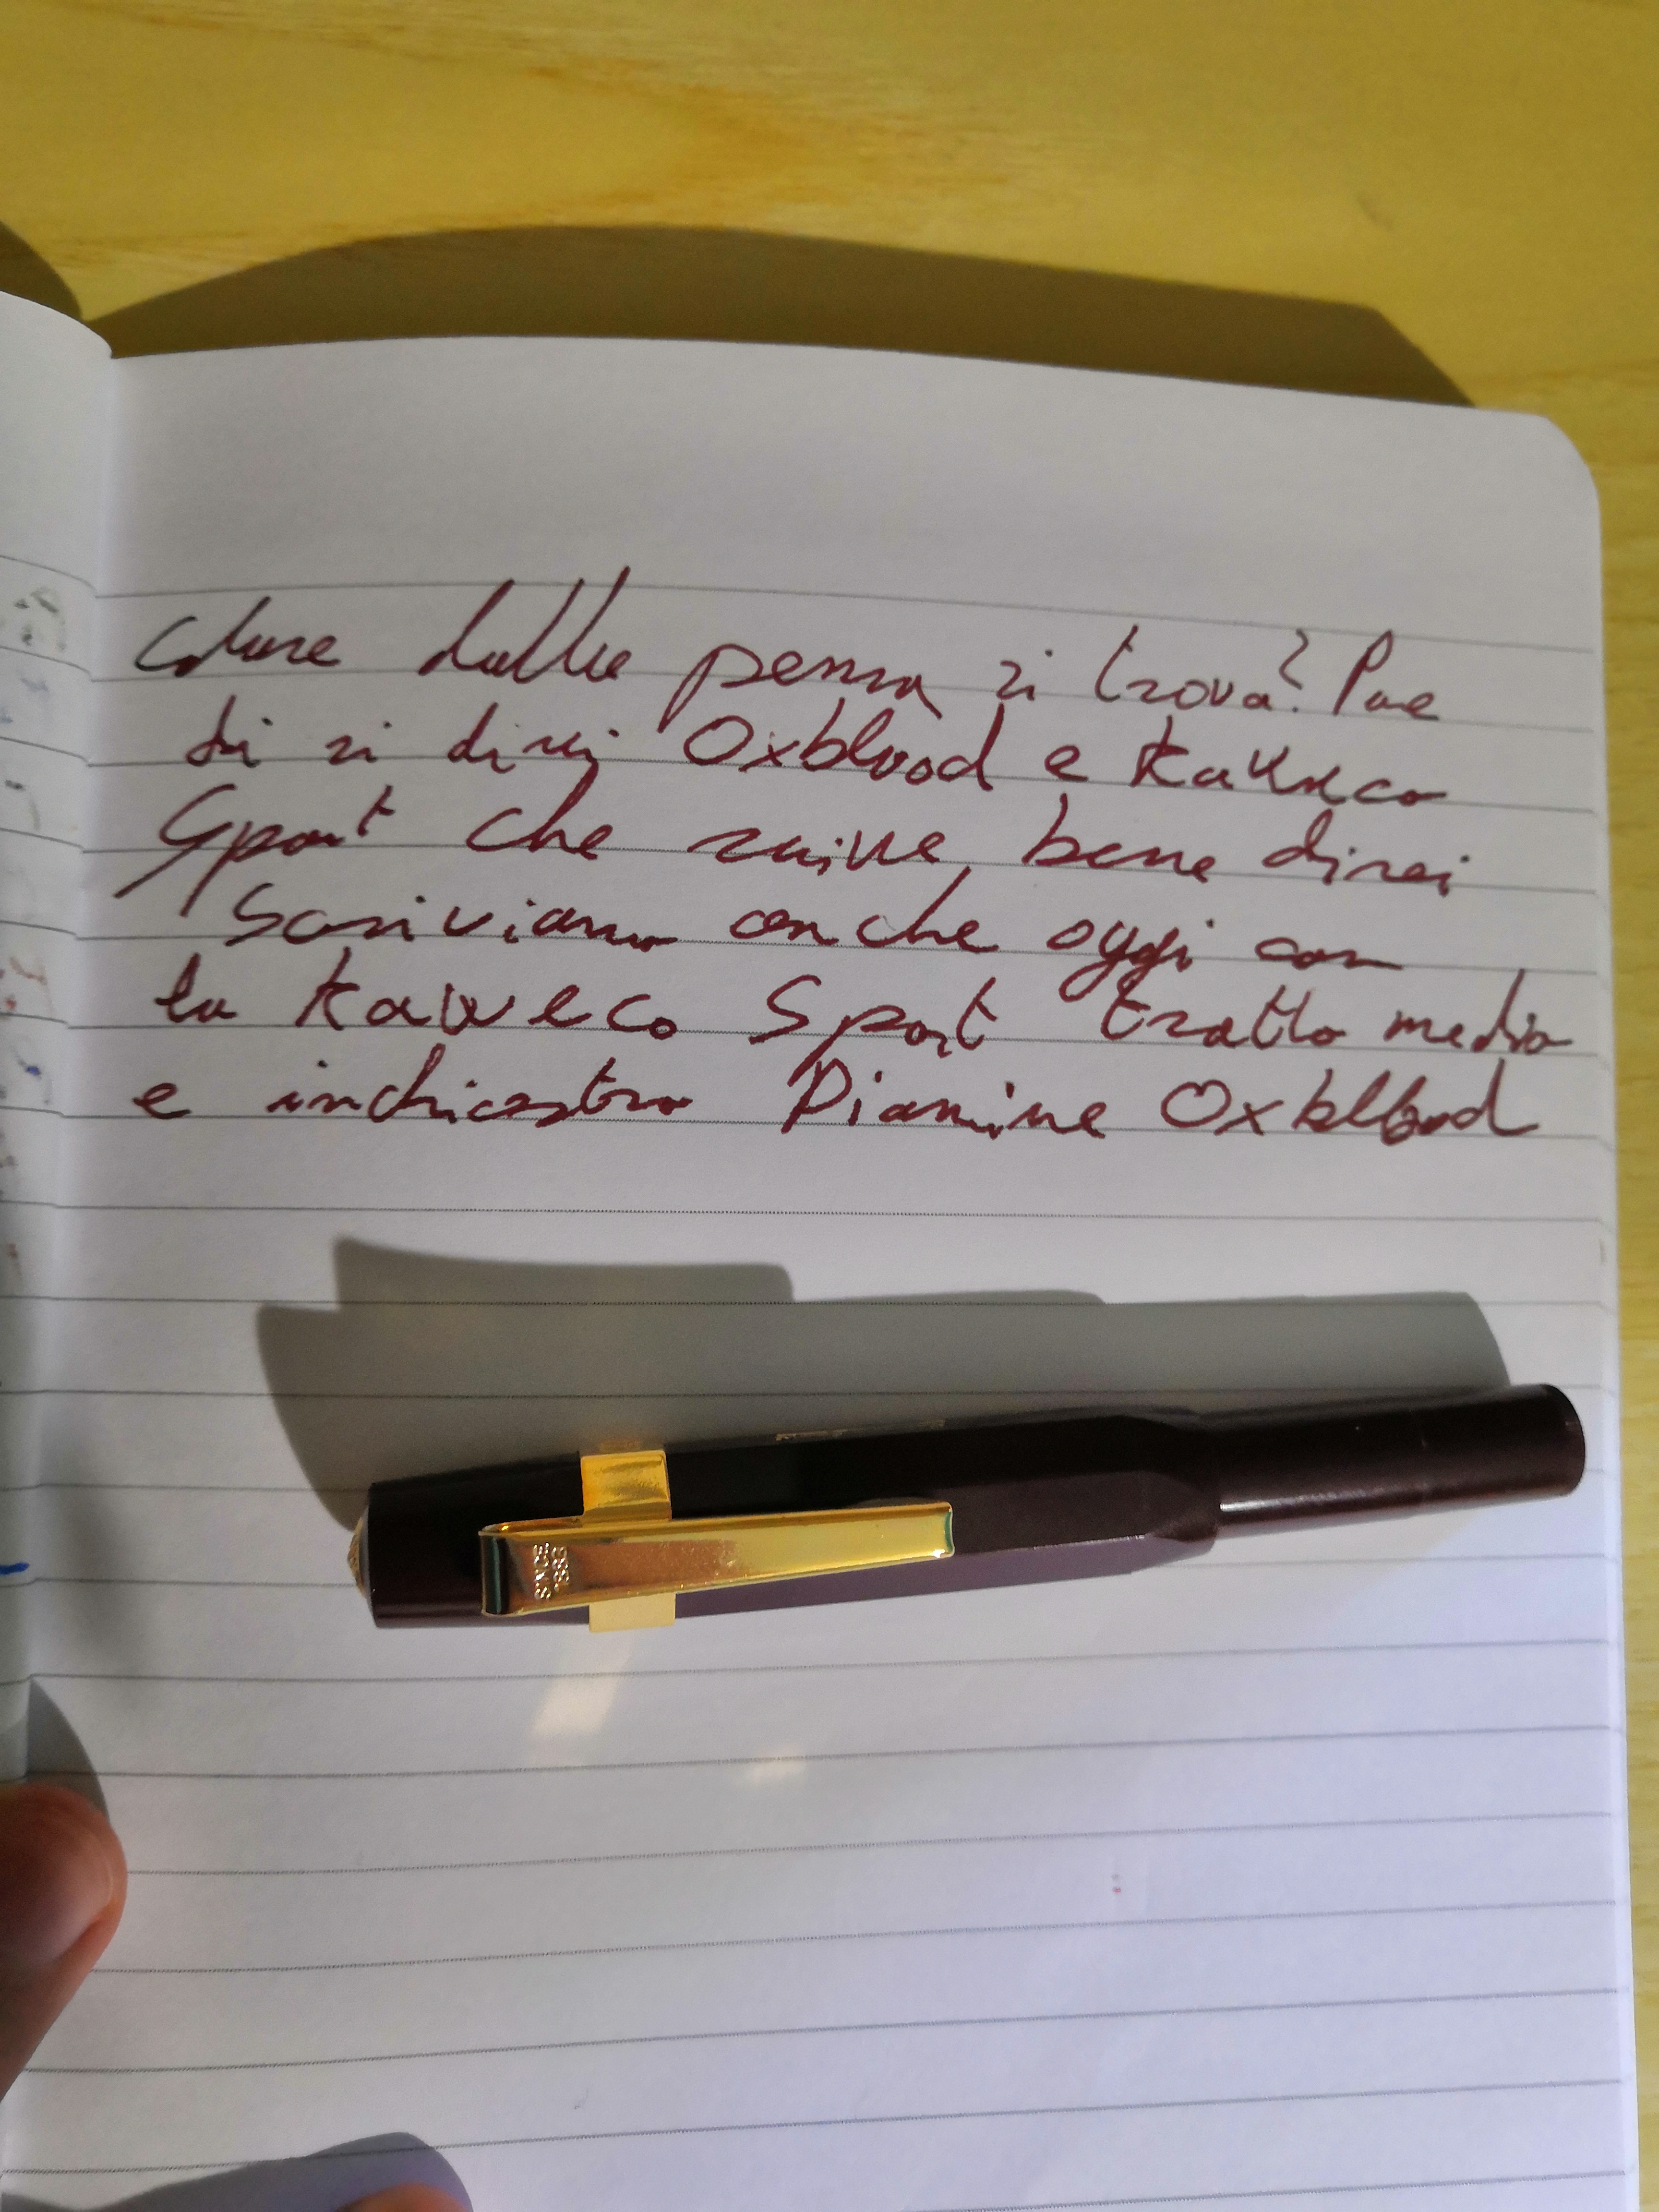 colore della penna si trova? Pare
di si direi Oxblood e Kaweco
Sport che scrive bene direi
Scriviamo anche oggi con
la Kaweco Sport tratto medio
e inchiostro Diamine Oxblood
SINCE
1883